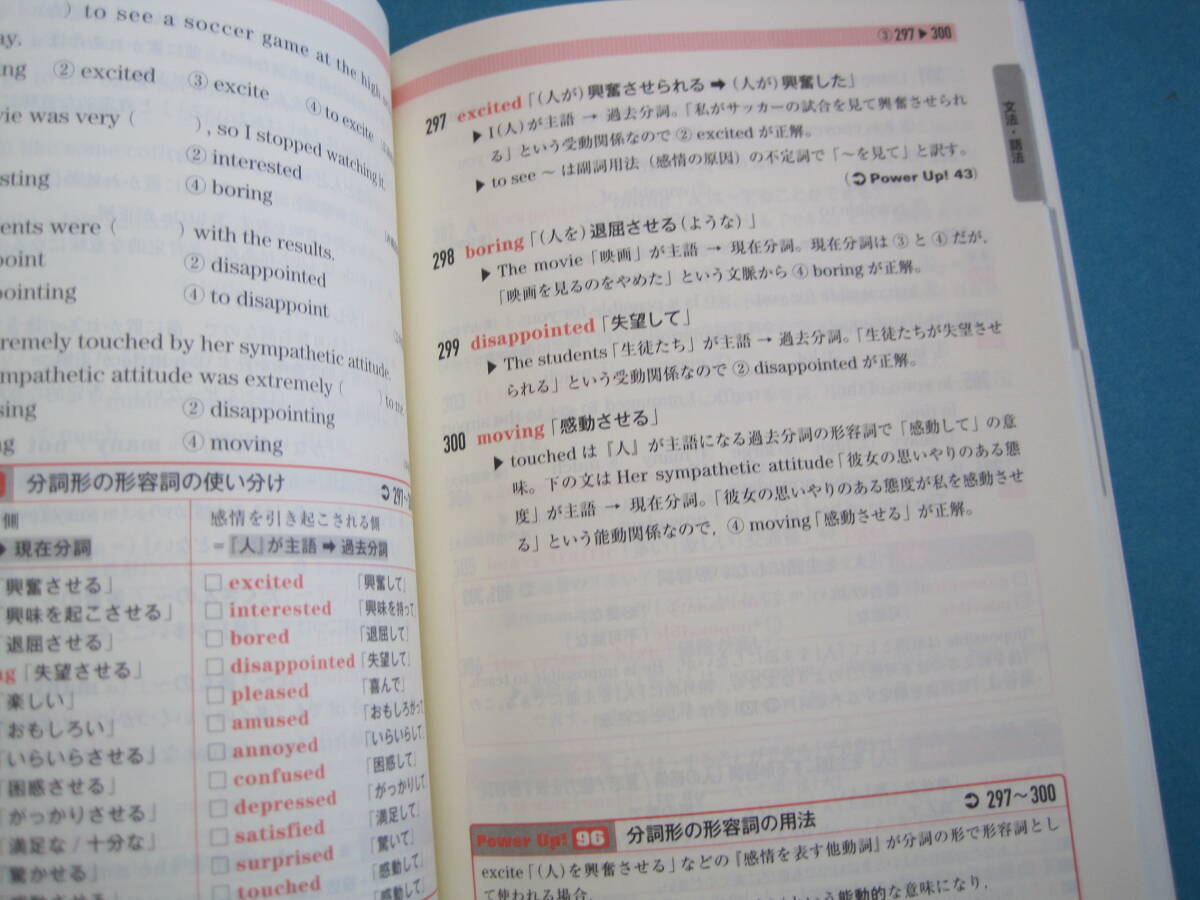 ) to see a soccer game at the high
ay.
ng ② excited ③ excite ④ to excite
vie was very ( ), so I stopped watching it.
② interested
esting ④ boring
ents were ( ) with the results.
point ② disappointed
pointing ④ to disappoint
remely touched by her sympathetic attitude.
mpathetic attitude was extremely ( ) to me
sing ② disappointing
ng ④ moving
分詞形の形容詞の使い分け
側
感情を引き起こされる側
現在分詞
=『人』が主語 ➡ 過去分詞
「興奮させる」 □ excited 「興奮して」
「興味を起こさせる」 □ interested 「興味を持って
「退屈させる」 □ bored 「退屈して」
ng 「失望させる」 □ disappointed 「失望して」
「楽しい」 □ pleased 「喜んで」
「おもしろい」 □ amused 「おもしろがって
「いらいらさせる」 □ annoyed 「いらいらして」
「困惑させる」 □ confused 「困惑して」
「がっかりさせる」 □ depressed 「がっかりして
「満足な / 十分な」 □ satisfied 「満足して」
「驚かせる」 □ surprised 「驚いて」
「感動させる」 □ touched 「感動して」
「感動して」
③ 297 ▶ 300
文法・語法
297 excited「(人が)興奮させられる ➡ (人が)興奮した」
▶ I(人)が主語 → 過去分詞。「私がサッカーの試合を見て興奮させられ
る」という受動関係なので ② excited が正解。
▶ to see ~ は副詞用法(感情の原因)の不定詞で「~を見て」と訳す。
(➲ Power Up! 43)
298 boring「(人を)退屈させる(ような)」
▶ The movie「映画」が主語 → 現在分詞。現在分詞は ③ と ④ だが,
「映画を見るのをやめた」という文脈から ④ boring が正解。
299 disappointed「失望して」
▶ The students「生徒たち」が主語 → 過去分詞。「生徒たちが失望させ
られる」という受動関係なので ② disappointed が正解。
300 moving「感動させる」
▶ touched は『人』が主語になる過去分詞の形容詞で「感動して」の意
味。下の文は Her sympathetic attitude「彼女の思いやりのある態
度」が主語 → 現在分詞。「彼女の思いやりのある態度が私を感動させ
る」という能動関係なので, ④ moving「感動させる」が正解。
➲ 297~300
Power Up! 96 分詞形の形容詞の用法
excite「(人)を興奮させる」などの『感情を表す他動詞』が分詞の形で形容詞とし
て使われる場合,
という能動的な意味になり,